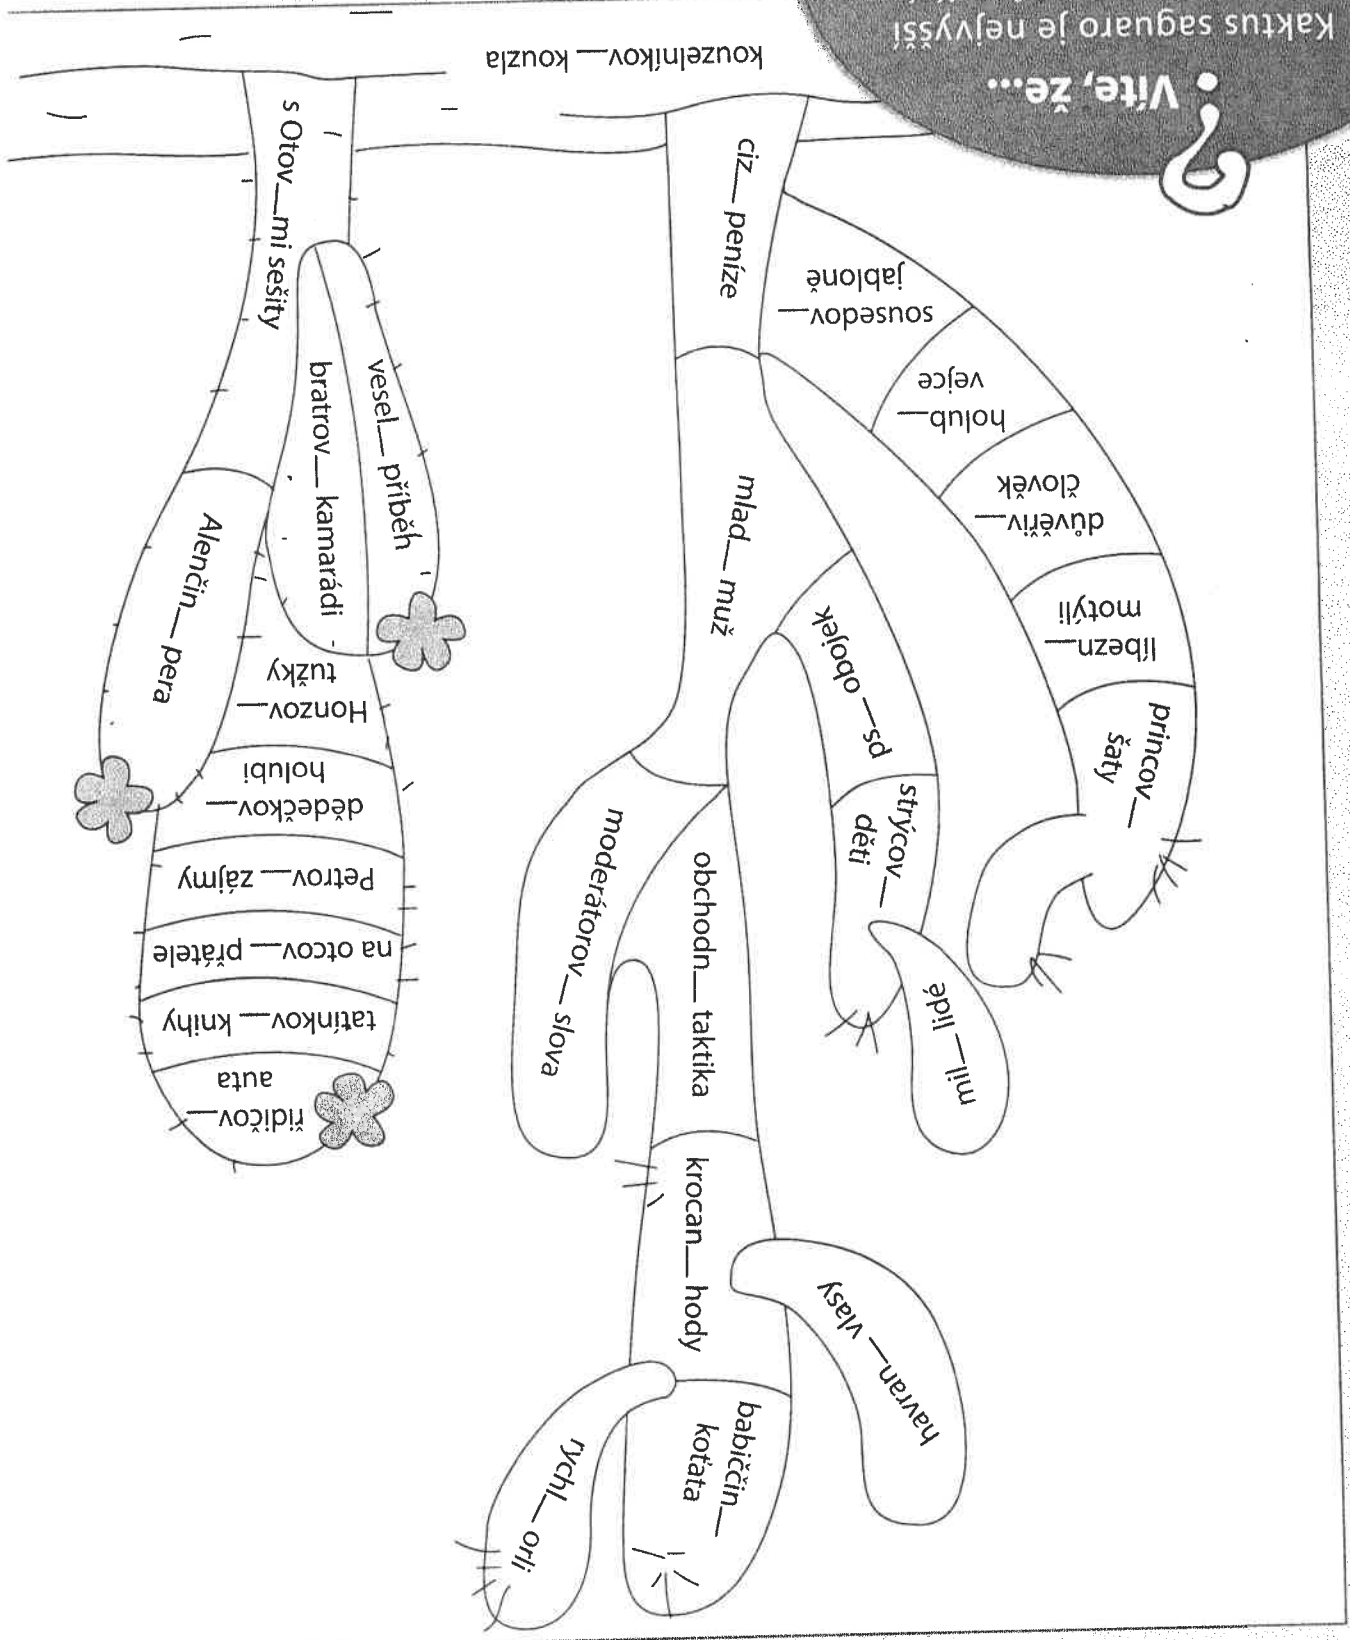 rychl__ orli
babiččin__
koťata
havran__ vlasy
krocan__ hody
mil__ lidé
obchodn__ taktika
moderátorov__ slova
strýcov__
děti
ps__ obojek
mlad__ muž
ciz__ peníze
princov__
šaty
líbezn__
motýli
důvěřiv__
člověk
holub__
vejce
sousedov__
jabloně
řidičov__
auta
tatínkov__ knihy
na otcov__ přátele
Petrov__ zájmy
dědečkov__
holubi
Honzov__
tužky
Alenčin__ pera
vesel__ příběh
bratrov__ kamarádi
s Otov__mi sešity
kouzelníkov__ kouzla
Víte, že...
Kaktus saguaro je nejvyšší